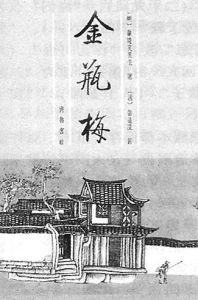 (明) 蘭陵笑笑生 著 (清) 張道深 評
金瓶梅
齊魯書社